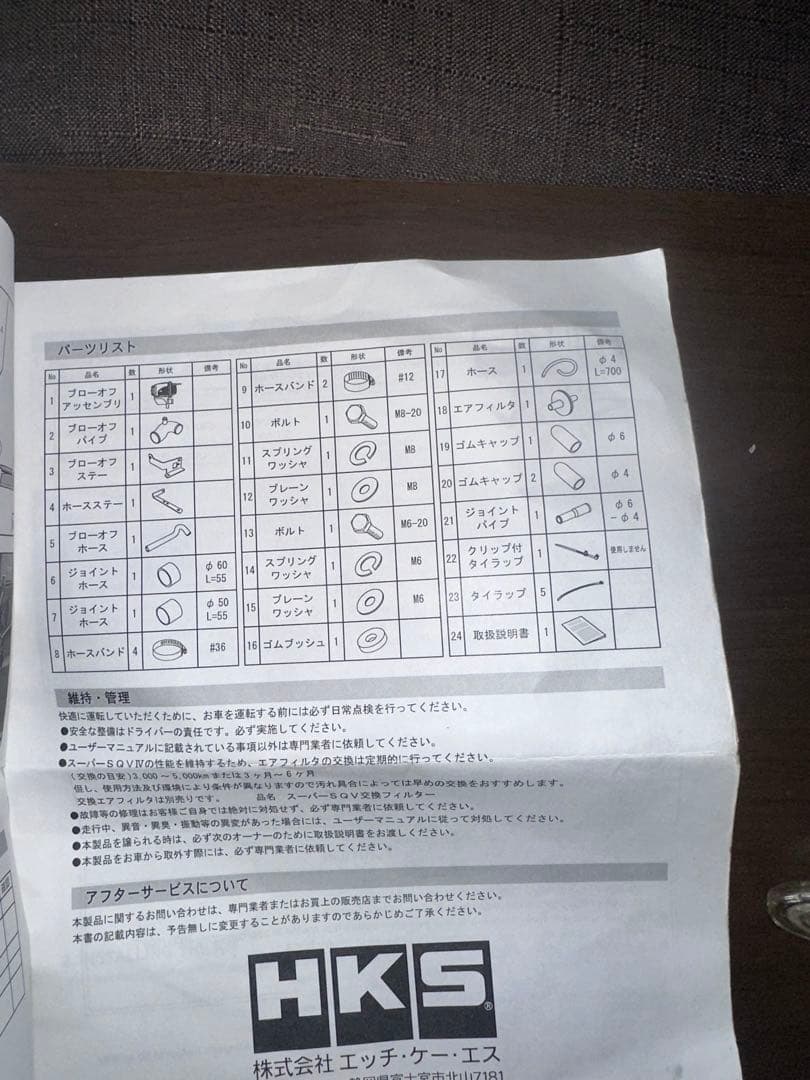 パーツリスト
No 品名 数 形状 備考
1 ブローオフアッセンブリ 1
2 ブローオフパイプ 1
3 ブローオフステー 1
4 ホースステー 1
5 ブローオフホース 1
6 ジョイントホース 1 φ60 L=55
7 ジョイントホース 1 φ50 L=55
8 ホースバンド 4 #36
No 品名 数 形状 備考
9 ホースバンド 2 #12
10 ボルト 1 M8-20
11 スプリングワッシャ 1 M8
12 プレーンワッシャ 1 M8
13 ボルト 1 M6-20
14 スプリングワッシャ 1 M6
15 プレーンワッシャ 1 M6
16 ゴムブッシュ 1
No 品名 数 形状 備考
17 ホース 1 φ4 L=700
18 エアフィルタ 1
19 ゴムキャップ 1 φ6
20 ゴムキャップ 2 φ4
21 ジョイントパイプ 1 φ6-φ4
22 クリップ付タイラップ 1 使用しません
23 タイラップ 5
24 取扱説明書 1
維持・管理
快適に運転していただくために、お車を運転する前には必ず日常点検を行ってください。
●安全な整備はドライバーの責任です。必ず実施してください。
●ユーザーマニュアルに記載されている事項以外は専門業者に依頼してください。
●スーパーSQVⅣの性能を維持するため、エアフィルタの交換は定期的に行ってください。
(交換の目安)3,000~5,000kmまたは3ヶ月~6ヶ月
但し、使用方法及び環境により条件が異なりますので汚れ具合によっては早めの交換をおすすめします。
交換エアフィルタは別売りです。 品名 スーパーSQV交換フィルター
●故障等の修理はお客様ご自身では絶対に対処せず、必ず専門業者に依頼してください。
●走行中、異音・異臭・振動等の異変があった場合には、ユーザーマニュアルに従って対処してください。
●本製品を譲られる時は、必ず次のオーナーのために取扱説明書をお渡しください。
●本製品をお車から取外す際には、必ず専門業者に依頼してください。
アフターサービスについて
本製品に関するお問い合わせは、専門業者またはお買上の販売店までお問い合わせください。
本書の記載内容は、予告無しに変更することがありますのであらかじめご了承ください。
HKS®
株式会社 エッチ・ケー・エス
静岡県富士宮市北山7181